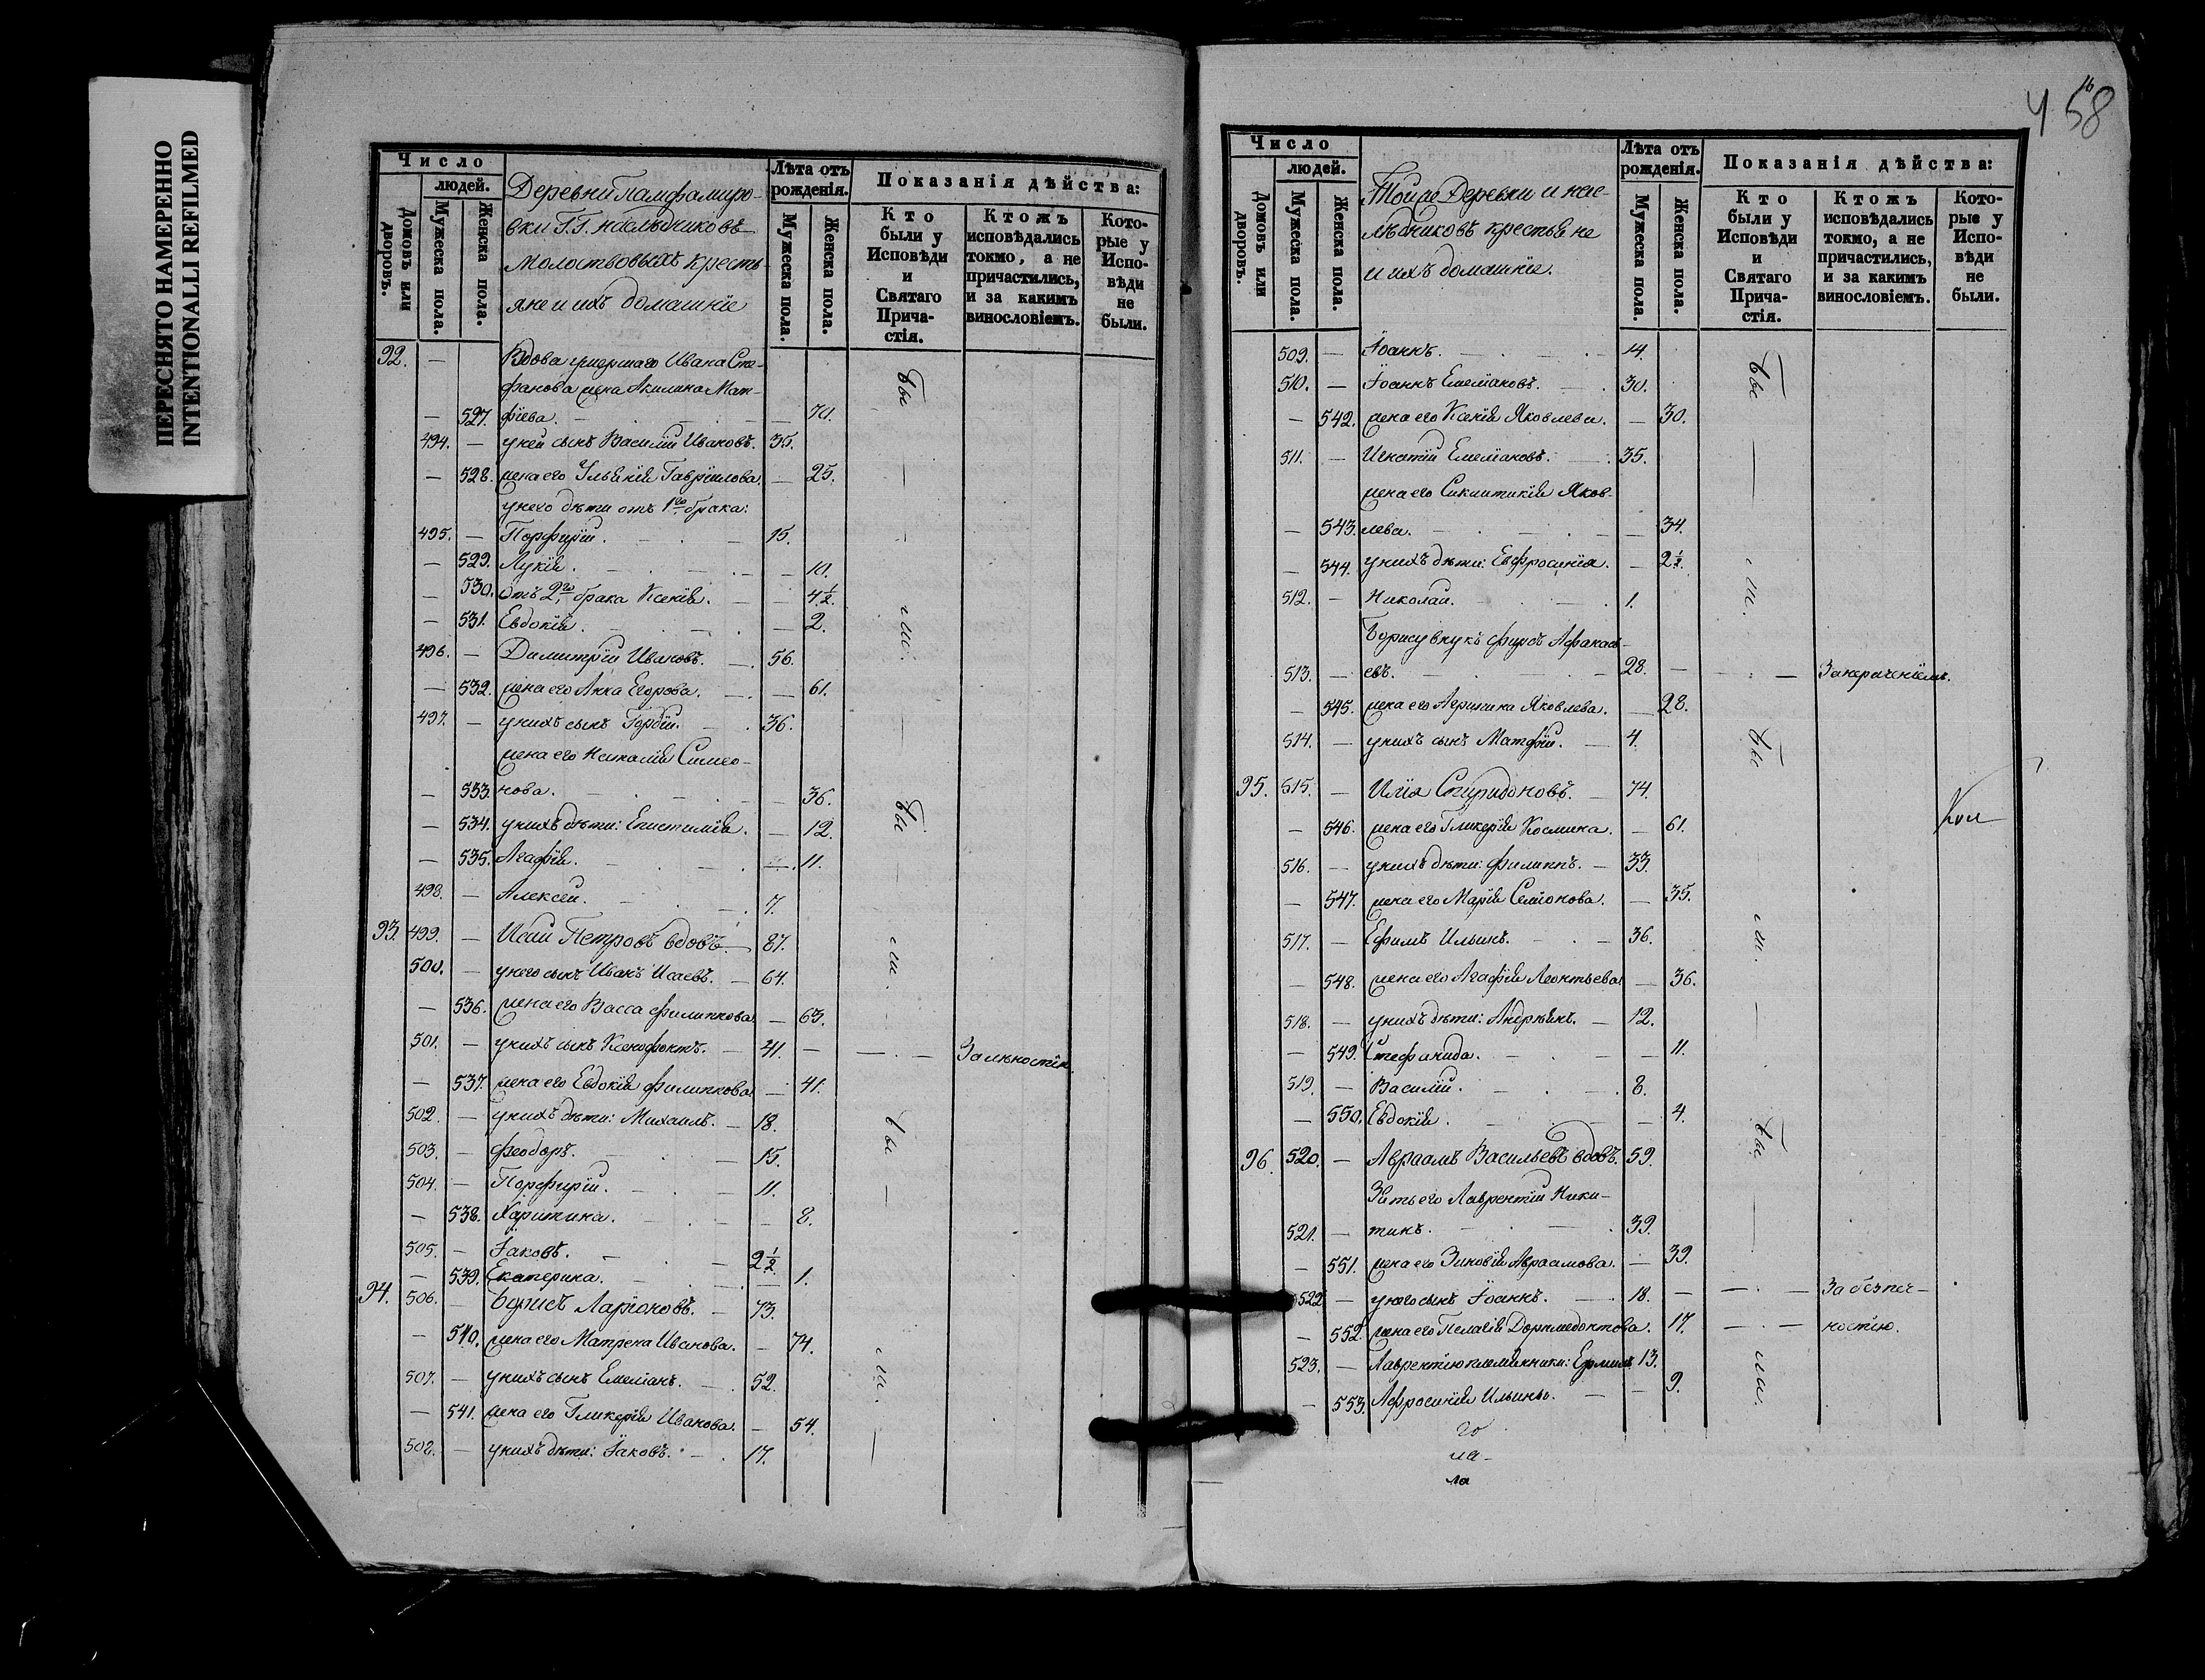 ПЕРЕСНЯТО НАМЕРЕННО
INTENTIONALLI REFILMED
Число
людей.
Домовъ или дворовъ.
Мужеска пола.
Женска пола.
Деревни Памфамиро-
вки Г.Г. наслѣдниковъ
Молоствовыхъ кресть-
яне и ихъ домашніе
Лѣта отъ рожденія.
Мужеска пола
Женска пола.
Показанія дѣйства:
Кто были у Исповѣди и Святаго Прича-стія.
Ктожъ исповѣдались токмо, а не причастились, и за какимъ винословіемъ.
Кото-рые у Испо-вѣди не были.
92. — Вдова умершаго Ивана Сте-
фанова жена Акилина Мат-
— 527. фіева. 70.
494. — у ней сынъ Василій Ивановъ. 35.
— 528. жена его Ульянія Гавріилова. — 25.
у него дѣти отъ 1го брака:
495. — Порфирій. 15.
— 529. Лукія. — 10.
— 530. Отъ 2го брака Ксенія. — 4 1/2.
— 531. Евдокія. — 2.
496. — Димитрій Ивановъ. 56.
— 532. жена его Анна Егорова. — 61.
497. — у нихъ сынъ Гордій. 36.
жена его Наталія Симео-
— 533. нова. — 36.
— 534. у нихъ дѣти: Епистимія. — 12.
— 535. Агафія. — 11.
498. — Алексѣй. 7.
93. 499. — Исай Петровъ вдовъ 87.
500. — у него сынъ Иванъ Исаевъ. 64.
— 536. жена его Васса Филиппова. — 63.
501. — у нихъ сынъ Ксенофонтъ. 41. — — За лѣностію.
— 537. жена его Евдокія Филиппова. — 41.
502. — у нихъ дѣти: Михаилъ. 18.
503. — Феодоръ. 15.
504. — Порфирій. 11.
— 538. Харитина. — 8.
505. — Іаковъ. 2 1/2
— 539. Екатерина. — 1.
94. 506. — Борисъ Ларіоновъ. 73.
— 540. жена его Матрена Иванова. — 74.
507. — у нихъ сынъ Емеліанъ. 52.
— 541. жена его Гликерія Иванова. — 54.
508. — у нихъ дѣти: Іаковъ. 17.
бы
ли.
бы
ли.
бы
ли.
4 58
16
Число
людей.
Домовъ или дворовъ.
Мужеска пола.
Женска пола.
Той же Деревни и нас-
лѣдниковъ крестьяне
и ихъ домашніе.
Лѣта отъ рожденія.
Мужеска пола.
Женска пола.
Показанія дѣйства:
Кто были у Исповѣди и Святаго Прича-стія.
Ктожъ исповѣдались токмо, а не причастились, и за какимъ винословіемъ.
Кото-рые у Испо-вѣди не были.
509. — Іоаннъ. 14.
510. — Іоаннъ Емеліановъ. 30.
— 542. жена его Ксенія Яковлева. — 30.
511. — Игнатій Емеліановъ. 35.
жена его Синклитикія Яков-
— 543. лева. — 34.
— 544. у нихъ дѣти: Евфросинія. — 2 1/2.
512. — Николай. 1.
Борису внукъ Фирсъ Афанась-
513. — евъ. 28. — —
— 545. жена его Агрипина Яковлева. — 28.
514. — у нихъ сынъ Матфій. 4.
95. 515. — Илія Спиридоновъ. 74.
— 546. жена его Гликерія Космина. — 61.
516. — у нихъ дѣти: Филиппъ. 33.
— 547. жена его Марія Семіонова. — 35.
517. — Ефимъ Ильинъ. 36.
— 548. жена его Агафія Леонтьева. — 36.
518. — у нихъ дѣти: Андреянъ. 12.
— 549. Стефанида. — 11.
519. — Василій. 8.
— 550. Евдокія. — 4.
96. 520. — Авраамъ Васильевъ вдовъ. 59.
Зять его Лаврентій Ники-
521. — тинъ. 39.
— 551. жена его Зиновія Авраамова. — 39.
522. — у него сынъ Іоаннъ. 18. — — За безпеч-
— 552. жена его Пелагія Доримедонтова. 17. — ностію.
523. — Лаврентію племянники: Ермилъ 13.
— 553. Афросинія Ильины. — 9.
бы
ли.
бы
ли.
бы
ли.
го
ла